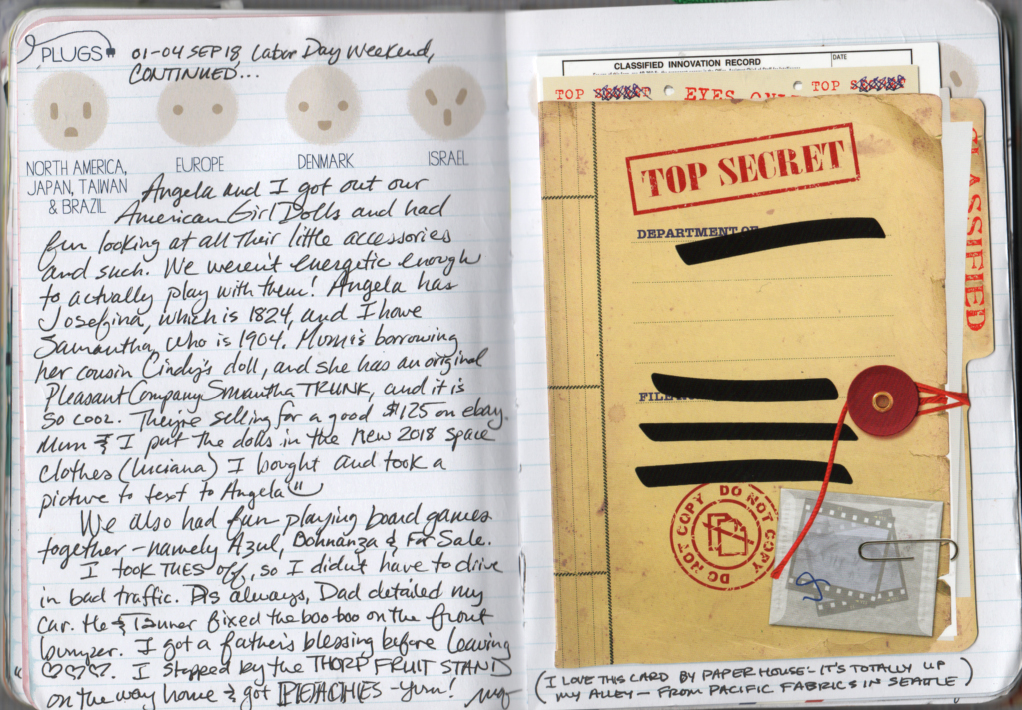 PLUGS
01-04 SEP 18, Labor Day Weekend,
CONTINUED...
NORTH AMERICA,
JAPAN, TAIWAN
& BRAZIL
EUROPE
DENMARK
ISRAEL
Angela and I got out our
American Girl Dolls and had
fun looking at all their little accessories
and such. We weren't energetic enough
to actually play with them! Angela has
Josefina, which is 1824, and I have
Samantha, who is 1904. Mum's borrowing
her cousin Cindy's doll, and she has an original
Pleasant Company Smantha TRUNK, and it is
so cool. They're selling for a good $125 on ebay.
Mum & I put the dolls in the new 2018 space
clothes (Luciana) I bought and took a
picture to text to Angela
We also had fun playing board games
together - namely Azul, Bohnanza & For Sale.
I took TUES off, so I didn't have to drive
in bad traffic. As always, Dad detailed my
car. He & Tanner fixed the boo-boo on the front
bumper. I got a father's blessing before leaving
♡♡♡. I stopped by the THORP FRUIT STAND
on the way home & got PEACHES - Yum!
CLASSIFIED INNOVATION RECORD
DATE
TOP SECRET EYES ONLY TOP SECRET
TOP SECRET
DEPARTMENT OF
FILE
CLASSIFIED
DO NOT COPY DO NOT COPY
(I LOVE THIS CARD BY PAPER HOUSE - IT'S TOTALLY UP
MY ALLEY - FROM PACIFIC FABRICS IN SEATTLE)